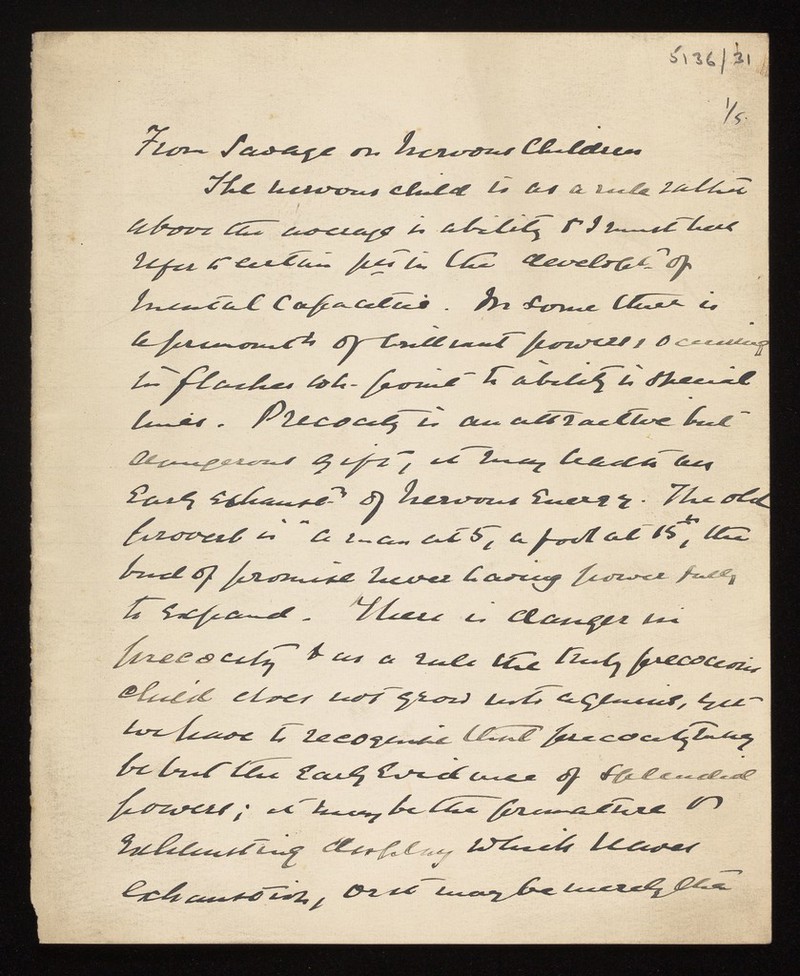 5136/31
1/5.
From Savage on Nervous Children
The nervous child is as a rule rather
above the average in ability & I must here
refer to certain pts in the developt. of
mental capacities. In some there is
a of brilliant powers, occurring
in flashes wh. point to ability in special
lines. Precocity is an attractive but
dangerous gift, it may lead to an
early exhaustn of nervous energy. The old
proverb is "a man at 5, a fool at 15", the
bud of promise never having power fully
to expand. There is danger in
precocity & as a rule the truly precocious
child does not grow into a genius, yet
we have to recognise that precocity may
be but the early evidence of splendid
powers; it may be the premature &
exhausting display which leaves
exhaustion, or it may be merely the